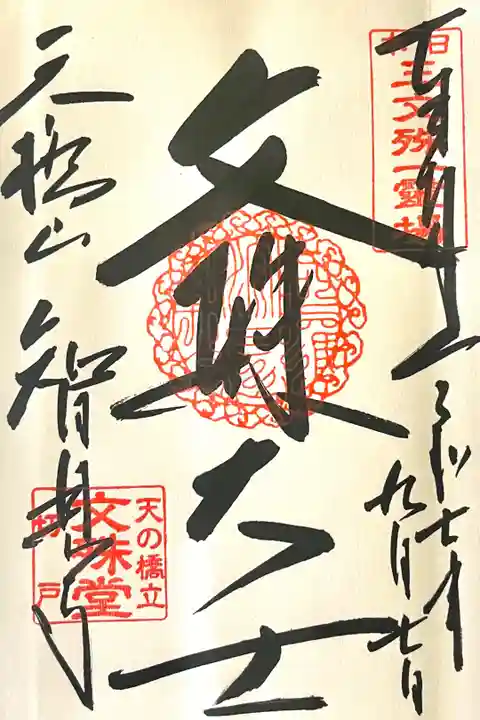 奉拝
令和七年
九月七日
日本
三文殊一霊場
文殊大士
天橋山
智恩寺
天の橋立
文殊堂
切戸